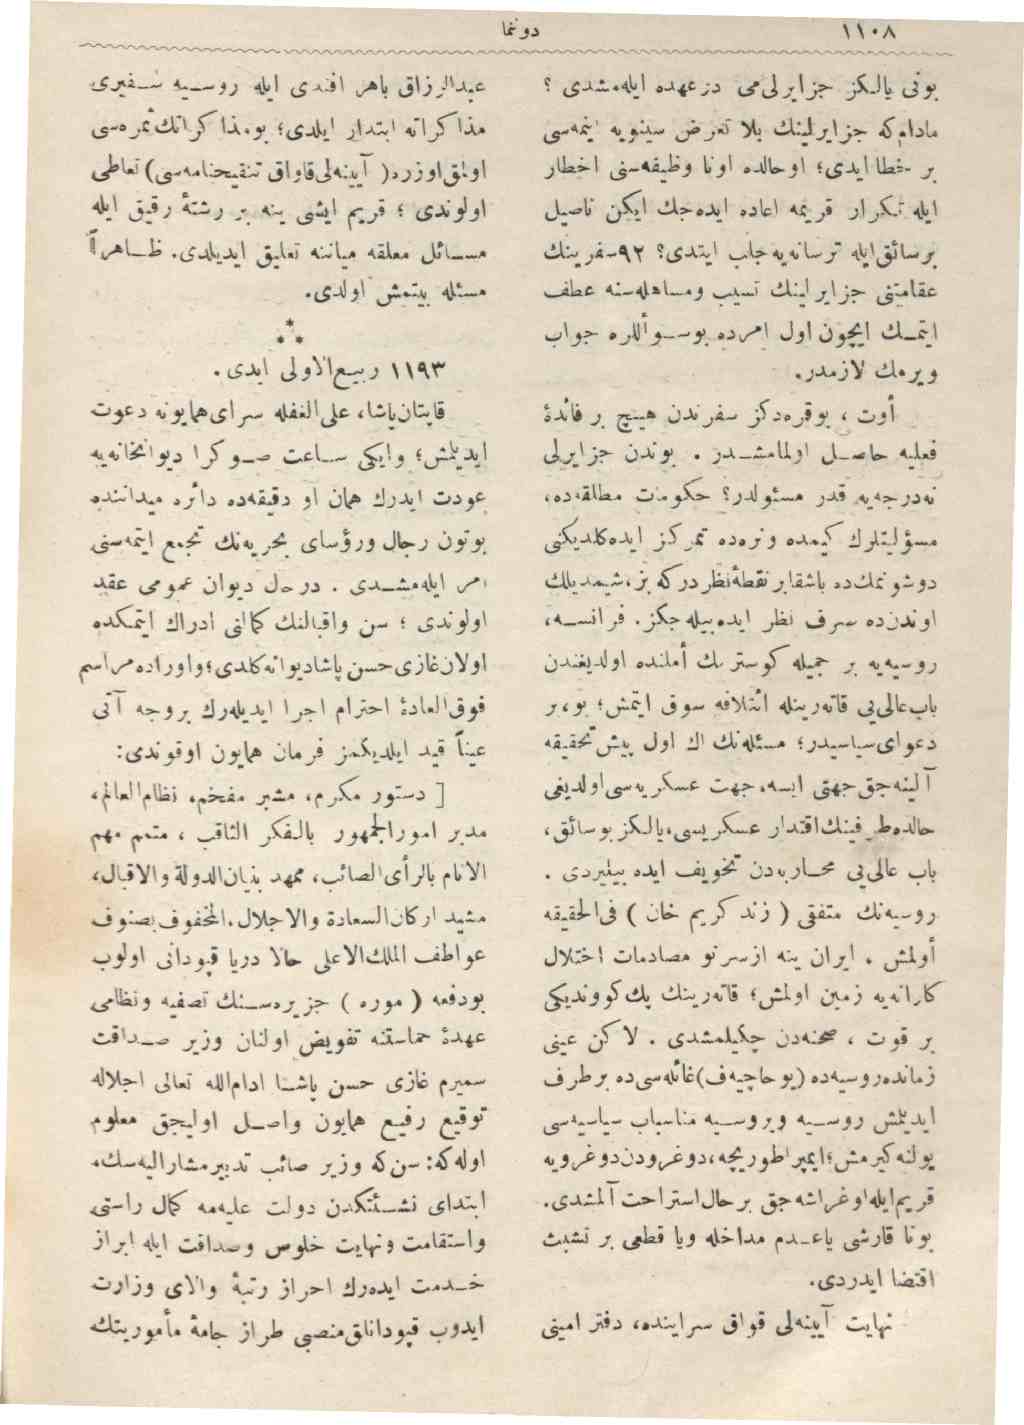 ١١٠٨
دونما
بونی یالکز جزایرلی‌می درعهده ایله‌مشدی ؟
مادام‌که جزایرلینك بلا تعرض سینویه اینمه‌سی
بر خطا ایدی؛ اوحالده اونا وظیفه‌سنی اخطار
ایله تکرار قریمه اعاده ایده‌جك ایکن ناصیل
برسائق‌ایله ترسانه‌یه جلب ایتدی؟ ٩٢سفرینك
عقامتنی جزایرلینك تسیب ومساهله‌سنه عطف
ایتمـك ایچون اول امرده بوسـوأللره جواب
ویرمك لازمدر.
أوت ، بوقره‌دکز سفرندن هیچ بر فائدۀ
فعلیه حاصـل اولمامشـدر . بوندن جزایرلی
نه‌درجه‌یه قدر مسئولدر؟ حکومات مطلقه‌ده،
مسؤلیتلرك کیمده ونره‌ده تمرکز ایده‌کلدیکنی
دوشونمك‌ده باشقابر نقطۀنظردرکه بز،شیمدیلك
اوندن‌ده صرف نظر ایده‌بیله‌جکز. فرانســه،
روسیه‌یه بر جمیله کوسترمك أملنده اولدیغندن
باب‌عالی‌یی قاته‌رینله ائتلافه سوق ایتمش؛ بو،بر
دعوای‌سیاسیدر؛ مسئله‌نك اك اول پیش تحقیقه
آلینه‌جق جهتی ایسه، جهت عسکریه‌سی اولدیغی
حالده‌طرفینك‌اقتدار عسکریسی،یالکز بوسائق،
باب عالی‌یی محـاربه‌دن تخویف ایده‌بیلیردی .
روسیه‌نك متفقی ( زند کریم خان ) فی‌الحقیقه
أولمش . ایران ینه ازسرنو مصادمات اختلال
کارانه‌یه زمین اولمش؛ قاته‌رینك پك کووندیکی
بر قوت ، صحنه‌دن چکیلمشدی . لاکن عینی
زمانده‌روسیه‌ده (پوخاچیه‌ف)غائله‌سی‌ده برطرف
ایدیلمش روسـیه وپروسـیه مناسبات سیاسیه‌سی
یولنه‌کیرمش؛ایمپراطوریچه،دوغرودن‌دوغرویه
قریم‌ایله‌اوغراشه‌جق بر حال‌استراحت آلمشدی.
بونا قارشی یاعـدم مداخله ویا قطعی بر تشبث
اقتضا ایدردی.
نهایت آیینه‌لی قواق سراینده، دفتر امینی
عبدالرزاق باهر افندی ایله روسـیه سـفیری
مذاکراته ابتدار ایلدی؛ بومذاکراتك ثمره‌سی
اولمق‌اوزره( آیینه‌لی‌قاواق تنقیحنامه‌سی) تعاطی
اولوندی ؛ قریم ایشی ینه بر رشتۀ رقیق ایله
مسـائل معلقه میاننه تعلیق ایدیلدی. ظـاهراً
مسئله بیتمش اولدی.
***
١١٩٣ ربیع‌الاولی ایدی.
قاپتان‌پاشا، علی‌الغفله سرای‌همایونه دعوت
ایدیلمش؛ وایکی سـاعت صـوکرا دیوانخانه‌یه
عودت ایدرك همان او دقیقه‌ده دائره میداننده
بوتون رجال ورؤسای بحریه‌نك تجمع ایتمه‌سنی
امر ایله‌مشـدی . درحال دیوان عمومی عقد
اولوندی ؛ سن واقبالنك کمالنی ادراك ایتمکده
اولان‌غازی‌حسن پاشادیوانه‌کلدی؛واوراده‌مراسم
فوق‌العادۀ احترام اجرا ایدیله‌رك بروجه آتی
عیناً قید ایلدیکمز فرمان همایون اوقوندی:
[ دستور مکرم، مشیر مفخم، نظام‌العالم،
مدبر امورالجمهور بالفکر الثاقب ، متمم مهم
الانام بالرأی‌الصائب، ممهد بنیان‌الدولة والاقبال،
مشید ارکان‌السعادة والاجلال.المحفوف‌بصنوف
عواطف الملك‌الاعلی حالا دریا قپودانی اولوب
بودفعه ( موره ) جزیره‌سـنك تصفیه ونظامی
عهدۀ حماستنه تفویض اولنان وزیر صـداقت
سمیرم غازی حسن پاشـا ادام‌الله تعالی اجلاله
توقیع رفیـع همایون واصـل اولیجق معلوم
اوله‌که: سن‌که وزیر صائب تدبیرمشارالیه‌سك،
ابتدای نشـئتکدن دولت علیه‌مه کمال راستی
واستقامت ونهایت خلوص وصداقت ایله ابراز
خـدمت ایده‌رك احراز رتبۀ والای وزارت
ایدوب قپودانلق‌منصبی طراز جامۀ مأموریتك